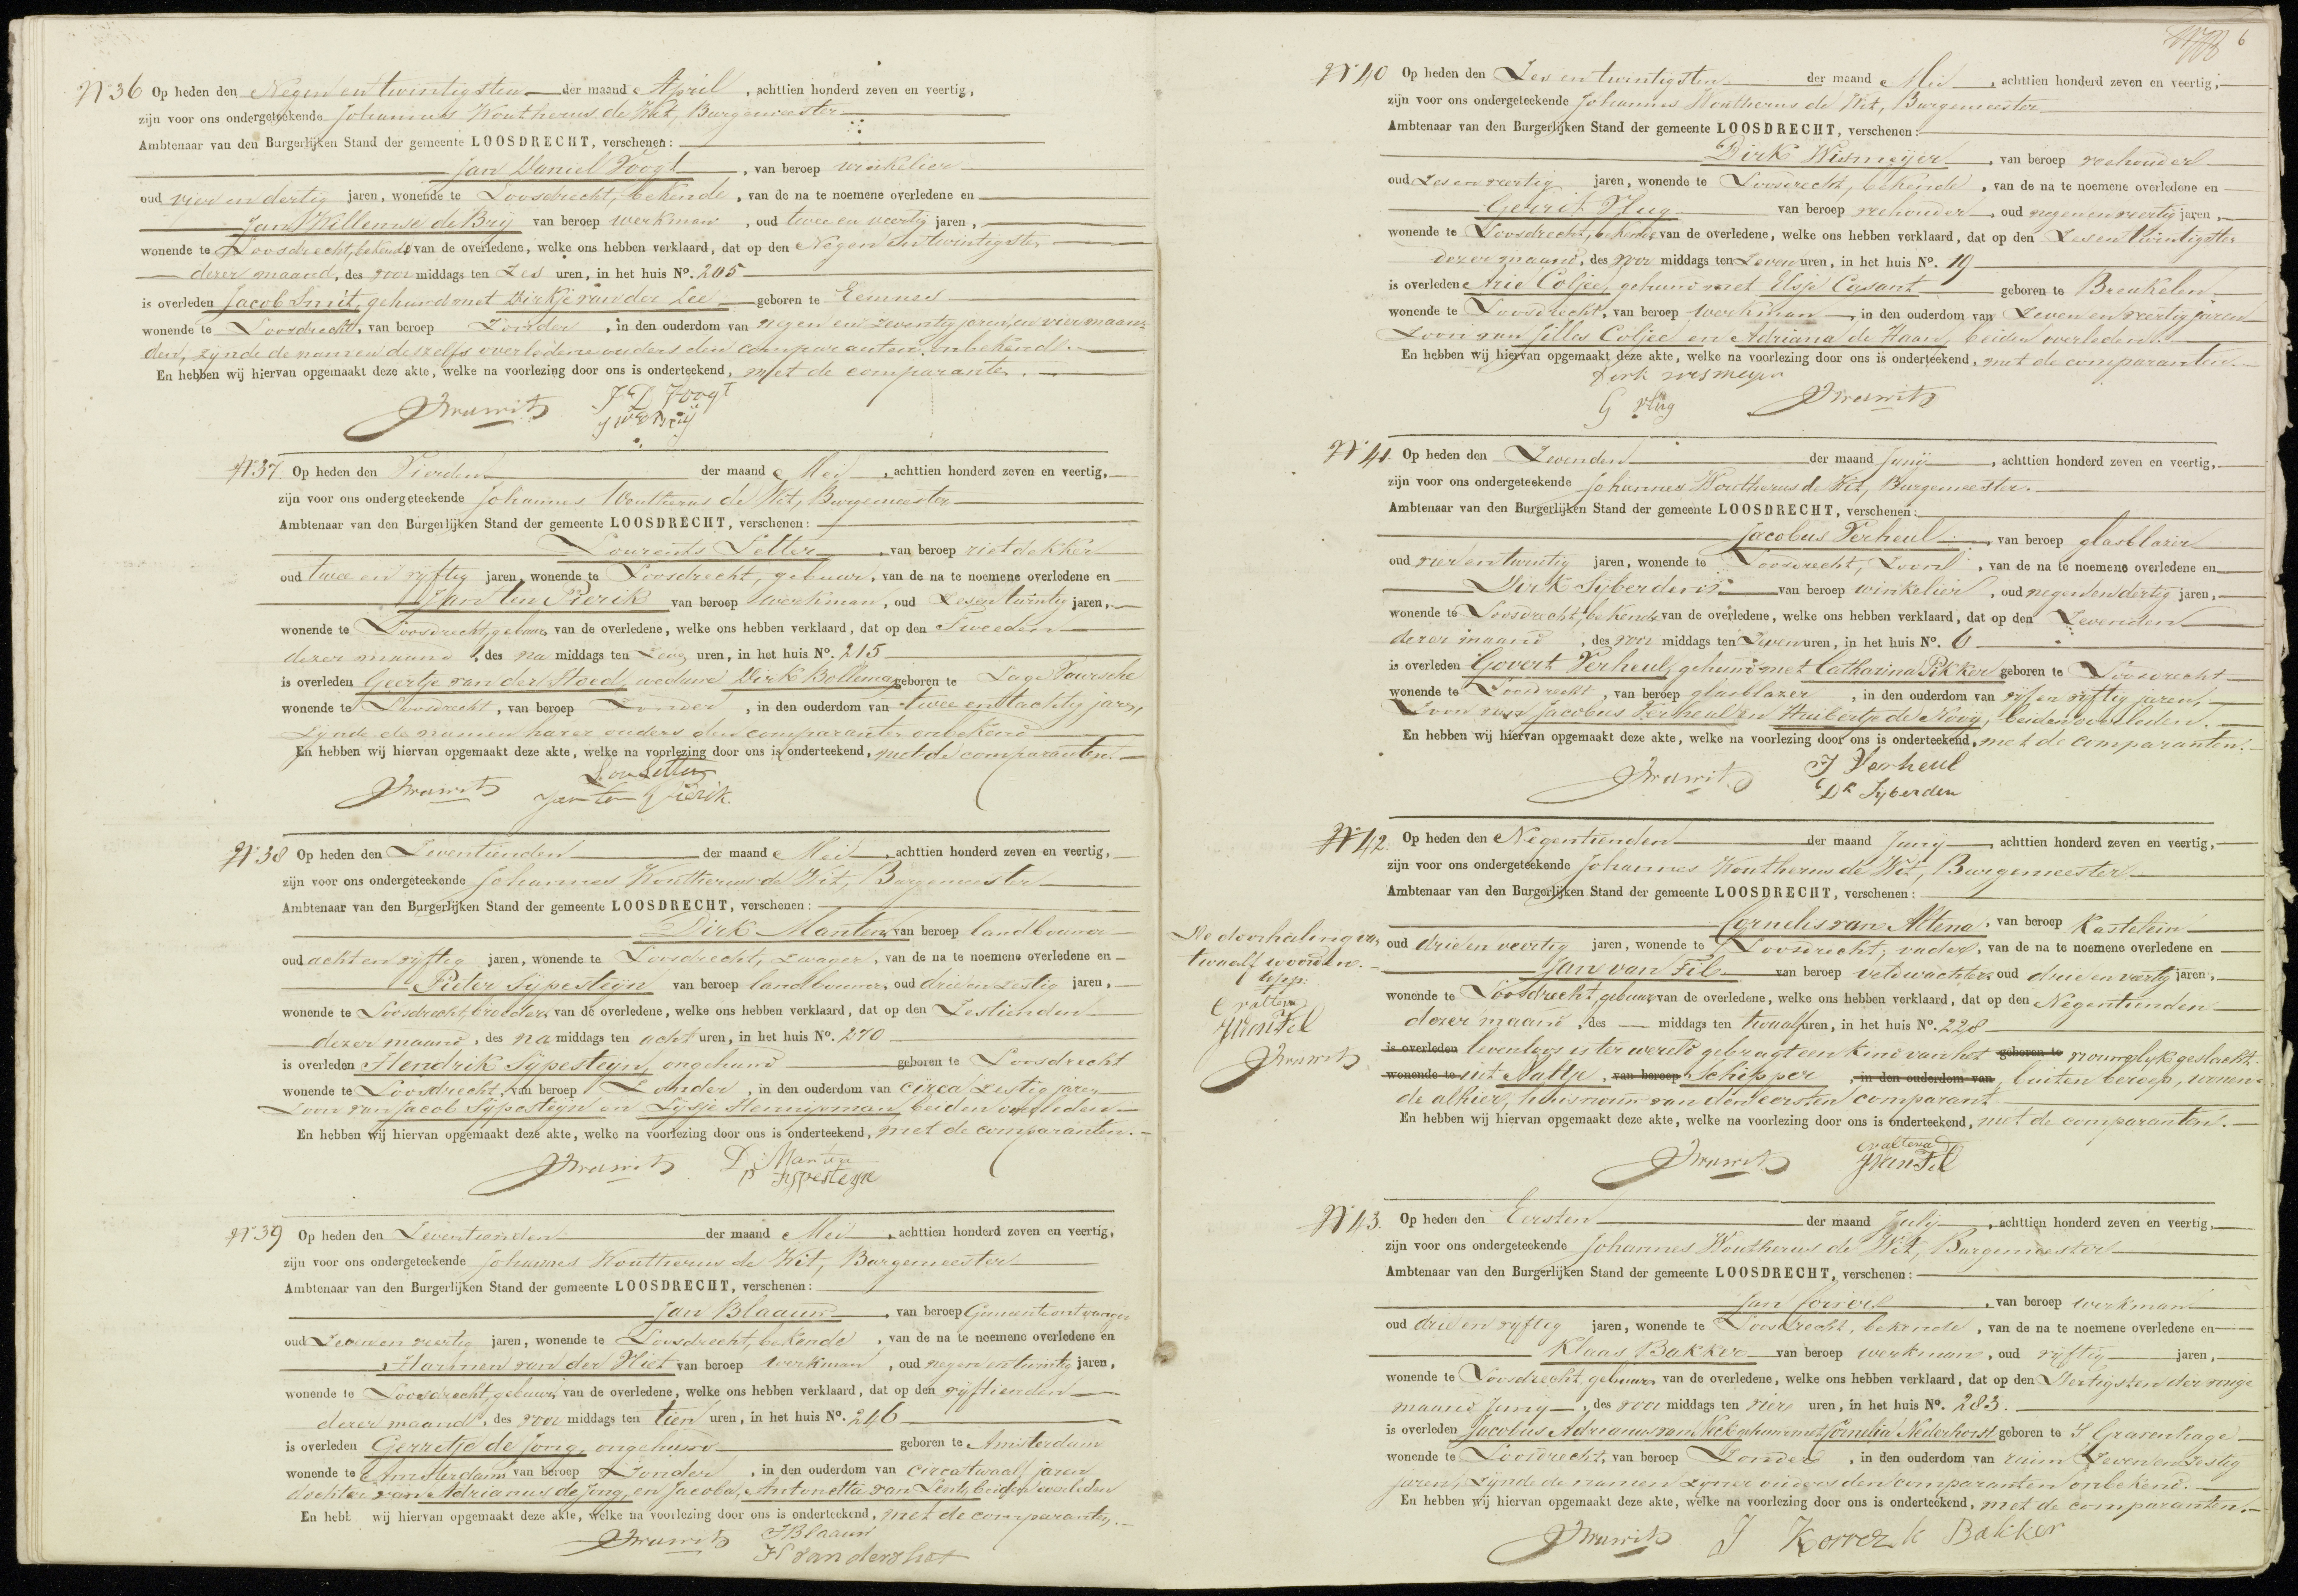 6
N 36 Op heden den Negen en twintigsten der maand April, achttien honderd zeven en veertig,
zijn voor ons ondergeteekende Johannes Woutherus de Wit, Burgemeester
Ambtenaar van den Burgerlijken Stand der gemeente LOOSDRECHT, verschenen:
Jan Daniel Voogt, van beroep winkelier
oud vier en dertig jaren, wonende te Loosdrecht, bekende, van de na te noemene overledene en
Jan Willemse de Brij van beroep werkman, oud twee en veertig jaren,
wonende te Loosdrecht, bekende van de overledene, welke ons hebben verklaard, dat op den Negen en twintigsten
dezer maand, des voor middags ten Zes uren, in het huis No. 205
is overleden Jacob Smit, gehuwd met Dirkje van der Lee geboren te Eemnes
wonende te Loosdrecht, van beroep Zonder, in den ouderdom van negen en zeventig jaren, en vier maan-
den, zijnde de namen deszelfs overledene ouders den comparanten onbekend.
En hebben wij hiervan opgemaakt deze akte, welke na voorlezing door ons is onderteekend, met de comparanten.
JD Voogt
JW De Brij
N 37. Op heden den Vierden der maand Mei, achttien honderd zeven en veertig,
zijn voor ons ondergeteekende Johannes Woutherus de Wit, Burgemeester
Ambtenaar van den Burgerlijken Stand der gemeente LOOSDRECHT, verschenen:
Lourents Setter, van beroep rietdekker
oud twee en vijftig jaren, wonende te Loosdrecht, gebuur, van de na te noemene overledene en
Jan ten Pierik van beroep werkman, oud Zes en twintig jaren,
wonende te Loosdrecht, gebuur van de overledene, welke ons hebben verklaard, dat op den Tweeden
dezer maand, des na middags ten uren, in het huis No. 215
is overleden Geertje van der Vloed, weduwe Dirk Bolleman geboren te Lage Vuursche
wonende te Loosdrecht, van beroep Zonder, in den ouderdom van twee en tachtig jaren,
Zijnde de namen harer ouders den comparanten onbekend
En hebben wij hiervan opgemaakt deze akte, welke na voorlezing door ons is onderteekend, met de comparanten.
Lou Setter
Jan ten Pierik.
N 38 Op heden den Zeventienden der maand Mei, achttien honderd zeven en veertig,
zijn voor ons ondergeteekende Johannes Woutherus de Wit, Burgemeester
Ambtenaar van den Burgerlijken Stand der gemeente LOOSDRECHT, verschenen:
Dirk Manten, van beroep landbouwer
oud acht en vijftig jaren, wonende te Loosdrecht, Zwager, van de na te noemene overledene en
Pieter Sijpesteijn van beroep landbouwer, oud drie en zestig jaren,
wonende te Loosdrecht, broeder, van de overledene, welke ons hebben verklaard, dat op den Zestienden
dezer maand, des na middags ten acht uren, in het huis No. 270
is overleden Hendrik Sijpesteijn, ongehuwd geboren te Loosdrecht
wonende te Loosdrecht, van beroep Zonder, in den ouderdom van circa Zestig jaren
Zoon van Jacob Sijpesteijn en Lijsje Hennipman, beiden overleden
En hebben wij hiervan opgemaakt deze akte, welke na voorlezing door ons is onderteekend, met de comparanten.
D Manten
P Sypesteyn
N 39 Op heden den Zeventienden der maand Mei, achttien honderd zeven en veertig,
zijn voor ons ondergeteekende Johannes Woutherus de Wit, Burgemeester
Ambtenaar van den Burgerlijken Stand der gemeente LOOSDRECHT, verschenen:
Jan Blaauw, van beroep Gemeente ontvanger
oud Zeven en veertig jaren, wonende te Loosdrecht, bekende, van de na te noemene overledene en
Harmen van der Vliet van beroep werkman, oud negen en twintig jaren,
wonende te Loosdrecht, gebuur, van de overledene, welke ons hebben verklaard, dat op den vijftienden
dezer maand, des voor middags ten tien uren, in het huis No. 246
is overleden Gerretje de Jong, ongehuwd geboren te Amsterdam
wonende te Amsterdam van beroep Zonder, in den ouderdom van circa twaalf jaren
dochter van Adrianus de Jong, en Jacoba Antonetta van Lent, beiden overleden
En hebt wij hiervan opgemaakt deze akte, welke na voorlezing door ons is onderteekend, met de comparanten.
J Blaauw
H van der vliet
N 40 Op heden den Zes en twintigsten der maand Mei, achttien honderd zeven en veertig,
zijn voor ons ondergeteekende Johannes Woutherus de Wit, Burgemeester
Ambtenaar van den Burgerlijken Stand der gemeente LOOSDRECHT, verschenen:
Dirk Wismeijer, van beroep veehouder
oud Zes en veertig jaren, wonende te Loosdrecht, bekende, van de na te noemene overledene en
Gerrit Vlug van beroep veehouder, oud negen en veertig jaren,
wonende te Loosdrecht, bekende van de overledene, welke ons hebben verklaard, dat op den Zes en twintigsten
dezer maand, des voor middags ten Zeven uren, in het huis No. 19
is overleden Arie Coljee, gehuwd met Elsje Casant geboren te Breukelen
wonende te Loosdrecht, van beroep werkman, in den ouderdom van Zeven en veertig jaren
Zoon van Jilles Coljee en Adriana de Haan, beiden overleden.
En hebben wij hiervan opgemaakt deze akte, welke na voorlezing door ons is onderteekend, met de comparanten.
Dirk wismeyer
G Vlug
N 41. Op heden den Zevenden der maand Junij, achttien honderd zeven en veertig,
zijn voor ons ondergeteekende Johannes Woutherus de Wit, Burgemeester.
Ambtenaar van den Burgerlijken Stand der gemeente LOOSDRECHT, verschenen:
Jacobus Verheul, van beroep glasblazer
oud vier en twintig jaren, wonende te Loosdrecht, Zoon, van de na te noemene overledene en
Dirk Sijberden van beroep winkelier, oud negen en dertig jaren,
wonende te Loosdrecht, bekende van de overledene, welke ons hebben verklaard, dat op den Zevenden
dezer maand, des voor middags ten Zeven uren, in het huis No. 6
is overleden Govert Verheul, gehuwd met Catharina Pikker geboren te Loosdrecht
wonende te Loosdrecht, van beroep glasblazer, in den ouderdom van vijf en vijftig jaren,
Zoon van Jacobus Verheul en Huibertje de Nooij, beiden overleden.
En hebben wij hiervan opgemaakt deze akte, welke na voorlezing door ons is onderteekend, met de comparanten.
J Verheul
Dk Syberden
N 42. Op heden den Negentienden der maand Junij, achttien honderd zeven en veertig,
zijn voor ons ondergeteekende Johannes Woutherus de Wit, Burgemeester
Ambtenaar van den Burgerlijken Stand der gemeente LOOSDRECHT, verschenen:
Cornelis van Altena, van beroep Kastelein
oud drie en veertig jaren, wonende te Loosdrecht, vader, van de na te noemene overledene en
Jan van Fil van beroep veldwachter, oud drie en veertig jaren,
wonende te Loosdrecht, gebuur van de overledene, welke ons hebben verklaard, dat op den Negentienden
dezer maand, des middags ten twaalf uren, in het huis No. 228
is overleden levenloos is ter wereld gebragt een kind van het geboren te vrouwelijk geslacht
wonende te uit Aaltje, van beroep Schipper, in den ouderdom van, buiten beroep, wonen-
de alhier, huisvrouw van den eersten comparant
En hebben wij hiervan opgemaakt deze akte, welke na voorlezing door ons is onderteekend, met de comparanten.
C v altena
J van Fil
De doorhaling van
twaalf woorden.
C v altena
J van Fil
N 43. Op heden den Eersten der maand Julij, achttien honderd zeven en veertig,
zijn voor ons ondergeteekende Johannes Woutherus de Wit, Burgemeester
Ambtenaar van den Burgerlijken Stand der gemeente LOOSDRECHT, verschenen:
Jan, van beroep werkman
oud drie en vijftig jaren, wonende te Loosdrecht, bekende, van de na te noemene overledene en
Klaas Bakker van beroep werkman, oud vijftig jaren,
wonende te Loosdrecht, gebuur, van de overledene, welke ons hebben verklaard, dat op den Dertigsten der vorige
maand Junij, des voor middags ten vier uren, in het huis No. 283.
is overleden Jacobus Adrianus van Neck gehuwd met Cornelia Nederhorst geboren te S Gravenhage
wonende te Loosdrecht, van beroep Zonder, in den ouderdom van ruim Zeven en Zestig
jaren, Zijnde de namen zijner ouders den comparanten onbekend.
En hebben wij hiervan opgemaakt deze akte, welke na voorlezing door ons is onderteekend, met de comparanten.
J K Bakker